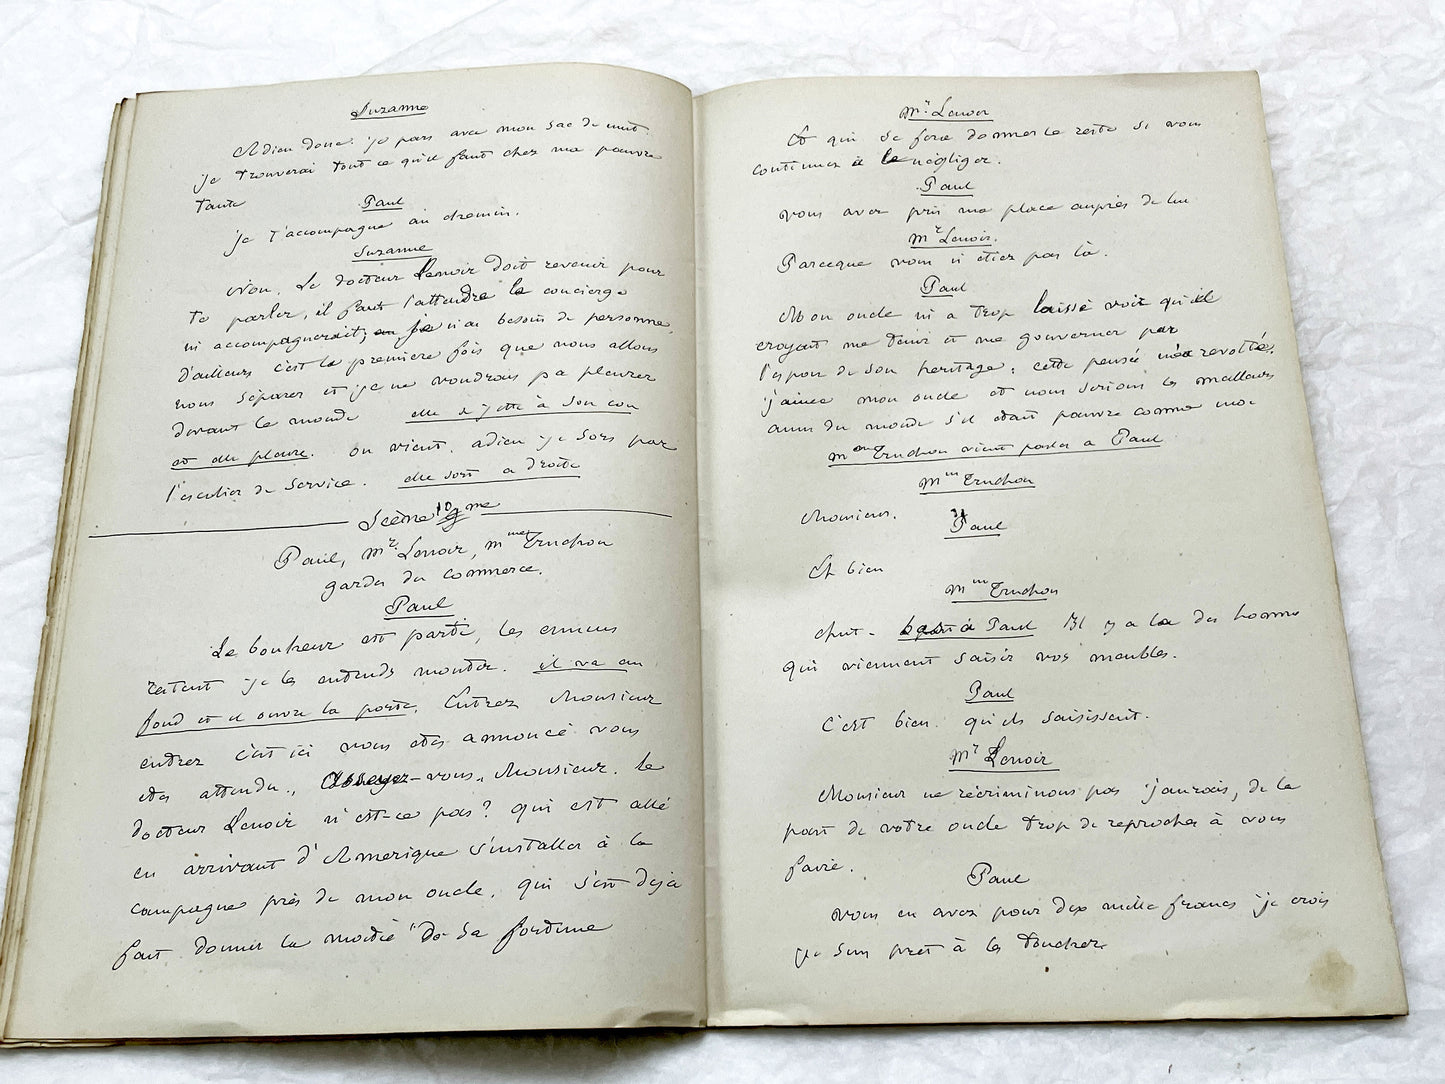 Suzanne
Adieu donc. je pars avec mon sac de nuit
je trouverai tout ce qu'il faut chez ma pauvre
tante
Paul
je t'accompagne au chemin.
Suzanne
Non, Le docteur Lenoir doit revenir pour
te parler, il faut l'attendre le concierge
m'accompagnerait, je n'ai besoin de personne,
d'ailleurs c'est la première fois que nous allons
nous séparer et je ne voudrais pas pleurer
devant le monde elle se jette à son cou
et elle pleure. on vient, adieu je sors par
l'escalier de service. elle sort a droite
Scène 10 me
Paul, Mr. Lenoir, Mme Truchon
gardes du commerce.
Paul
Le bonheur est parti, les ennuis
restent je les entends monter. il va au
fond et il ouvre la porte. Entrez Monsieur
entrez c'est ici vous etes annoncé vous
etes attendu, Asseyez-vous, Monsieur. le
docteur Lenoir n'est-ce pas? qui est allé
en arrivant d'Amerique s'installer à la
campagne près de mon oncle, qui s'est déjà
fait donner la moitié de sa fortune
Mr Lenoir
Et qui se fera donner le reste si vous
continuez à le négliger.
Paul
vous avez pris ma place auprès de lui
Mr Lenoir.
Parceque vous n'étiez pas là.
Paul
Mon oncle m'a trop laissé voir qu'il
croyait me tenir et me gouverner par
l'espoir de son heritage; cette pensée m'a revolté.
j'aime mon oncle et nous serions les meilleurs
amis du monde s'il était pauvre comme moi
Mme Truchon vient parler a Paul
Mme Truchon
Monsieur.
Paul
Eh bien
Mme Truchon
chut - bas à Paul Il y a la des homme
qui viennent saisir vos meubles.
Paul
C'est bien. qu'ils saisissent.
Mr Lenoir
Monsieur ne récriminons pas j'aurais, de la
part de votre oncle trop de reproches à vous
faire.
Paul
Vous en avez pour dix mille francs je crois
je suis prêt à les toucher